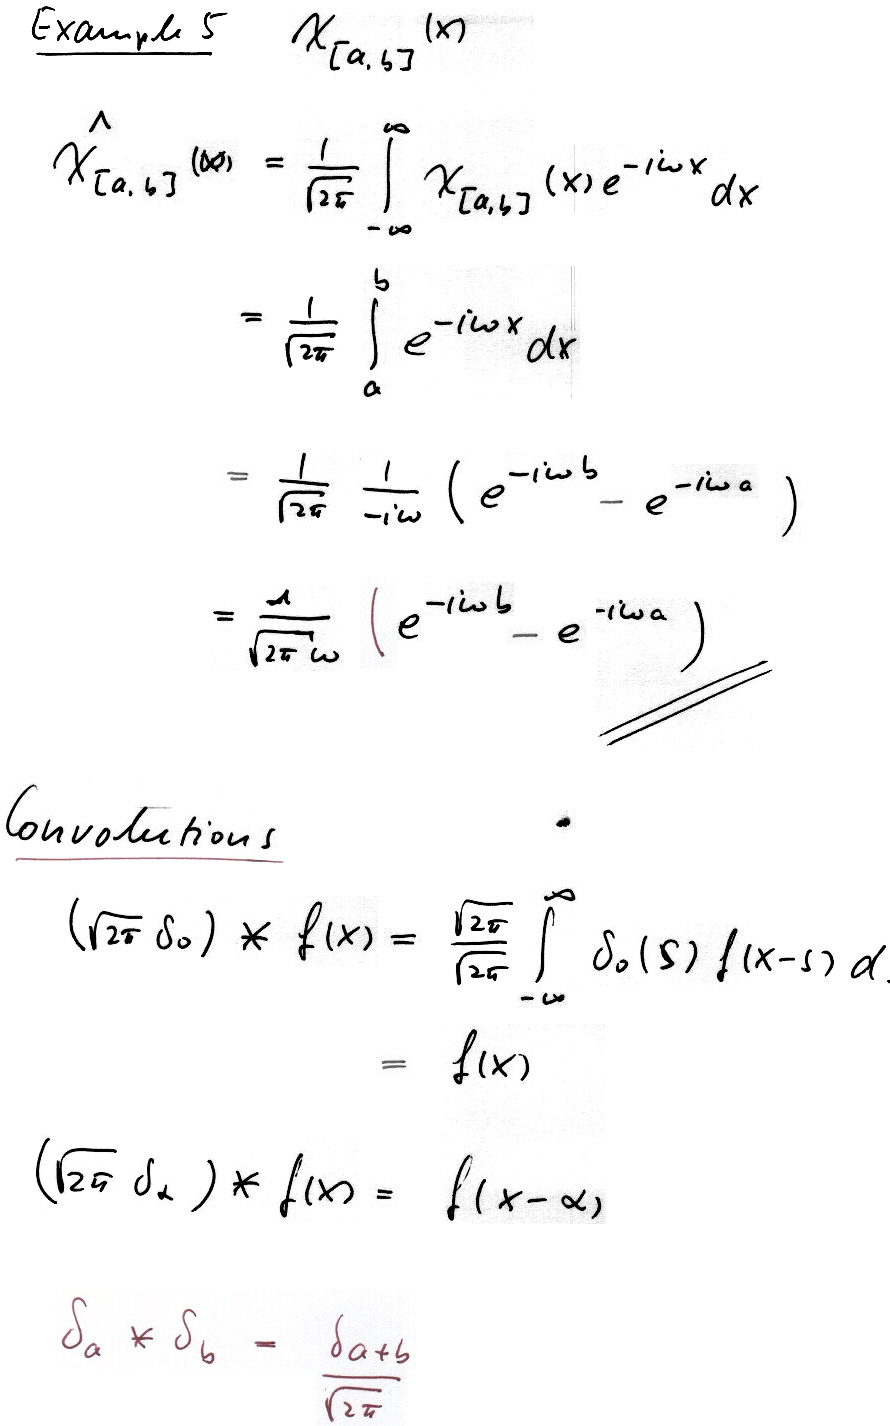 Example 5 χ_[a,b](x)
χ̂_[a,b](ω) = 1/√2π ∫_{-∞}^{∞} χ_[a,b](x) e^{-iωx} dx
= 1/√2π ∫_a^b e^{-iωx} dx
= 1/√2π 1/-iω ( e^{-iωb} - e^{-iωa} )
= i/√2π ω ( e^{-iωb} - e^{-iωa} )
Convolutions
(√2π δ₀) * f(x) = √2π/√2π ∫_{-∞}^{∞} δ₀(s) f(x-s) d
= f(x)
(√2π δ_α) * f(x) = f(x-α)
δ_a * δ_b = δ_{a+b}/√2π